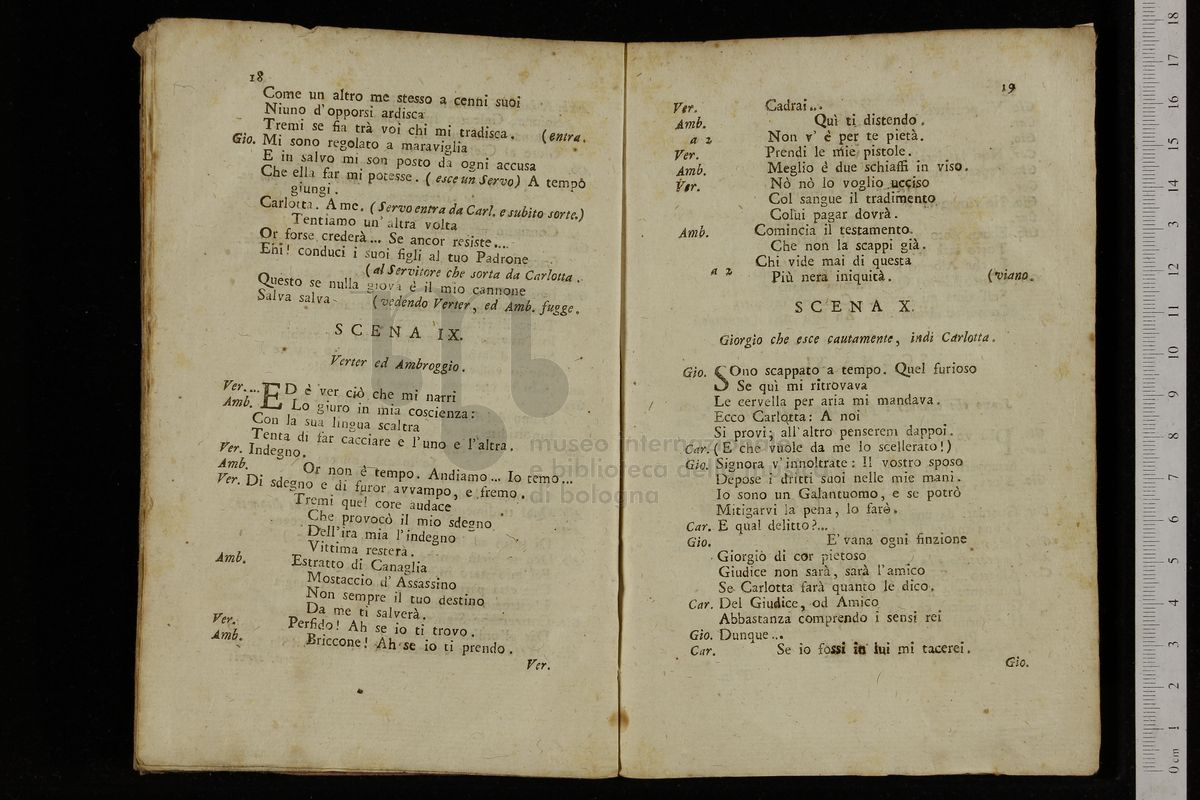 18
Come un altro me stesso a cenni suoi
Niuno d'opporsi ardisca
Tremi se fia trà voi chi mi tradisca. (entra.
Gio. Mi sono regolato a maraviglia
E in salvo mi son posto da ogni accusa
Che ella far mi potesse. (esce un Servo) A tempò
giungi.
Carlotta. A me. (Servo entra da Carl. e subito sorte.)
Tentiamo un' altra volta
Or forse crederà... Se ancor resiste....
Ehi! conduci i suoi figli al tuo Padrone
(al Servitore che sorta da Carlotta.
Questo se nulla giova è il mio cannone
Salva salva (vedendo Verter, ed Amb. fugge.
SCENA IX.
Verter ed Ambroggio.
Ver.... ED è ver ciò che mi narri
Amb. Lo giuro in mia coscienza:
Con la sua lingua scaltra
Tenta di far cacciare e l'uno e l'altra.
Ver. Indegno.
Amb. Or non è tempo. Andiamo... Io temo...
Ver. Di sdegno e di furor avvampo, e fremo.
Tremi quel core audace
Che provocò il mio sdegno
Dell'ira mia l'indegno
Vittima resterà.
Amb. Estratto di Canaglia
Mostaccio d' Assassino
Non sempre il tuo destino
Da me ti salverà.
Ver. Perfido! Ah se io ti trovo.
Amb. Briccone! Ah se io ti prendo.
Ver.
19
Ver. Cadrai...
Amb. Quì ti distendo.
a 2 Non v' è per te pietà.
Ver. Prendi le mie pistole.
Amb. Meglio è due schiaffi in viso.
Ver. Nò nò lo voglio ucciso
Col sangue il tradimento
Colui pagar dovrà.
Amb. Comincia il testamento.
Che non la scappi già.
Chi vide mai di questa
a 2 Più nera iniquità. (viano.
SCENA X.
Giorgio che esce cautamente, indi Carlotta.
Gio. SOno scappato a tempo. Quel furioso
Se quì mi ritrovava
Le cervella per aria mi mandava.
Ecco Carlotta: A noi
Si provi; all'altro penserem dappoi.
Car. (E che vuole da me lo scellerato!)
Gio. Signora v'innoltrate: Il vostro sposo
Depose i dritti suoi nelle mie mani.
Io sono un Galantuomo, e se potrò
Mitigarvi la pena, lo farò.
Car. E qual delitto?...
Gio. E' vana ogni finzione
Giorgiò di cor pietoso
Giudice non sarà, sarà l'amico
Se Carlotta farà quanto le dico.
Car. Del Giudice, od Amico
Abbastanza comprendo i sensi rei
Gio. Dunque...
Car. Se io fossi in lui mi tacerei.
Gio.
museo internazionale
e biblioteca della musica
di bologna
0 cm 1 2 3 4 5 6 7 8 9 10 11 12 13 14 15 16 17 18